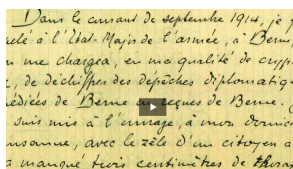 Dans le courant de septembre 1914, je f
pelé à l'Etat-Major de l'armée, à Berne,
on me chargea, en ma qualité de cryp
, de déchiffrer des dépêches diplomatiq
pédiées de Berne ou reçues de Berne.
suis mis à l'ouvrage, à mon domici
ausanne, avec le zèle d'un citoyen a
a manqué trois centimètres de thorax